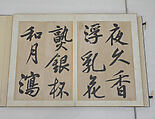 夜久香
浮乳花
爇銀杯
和月瀉